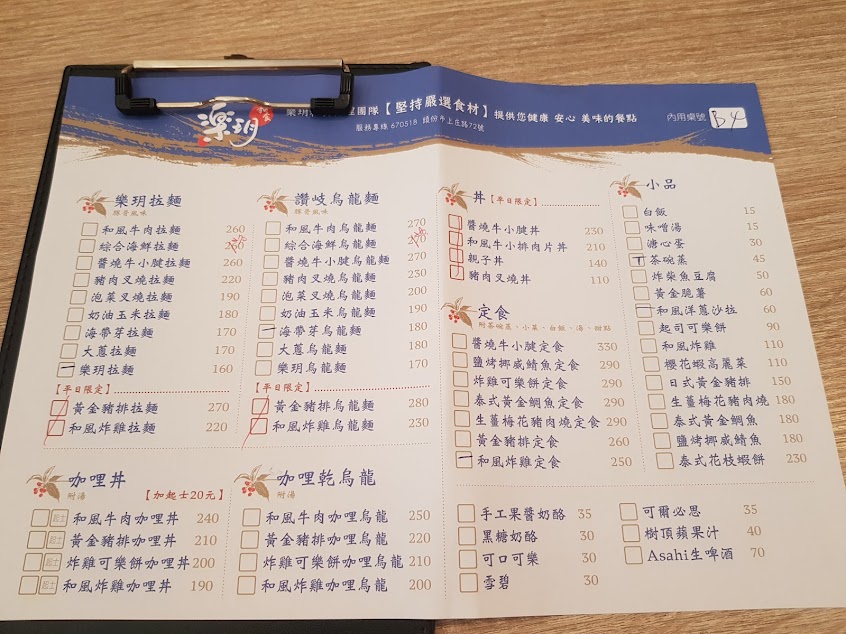 樂玥
和食
樂玥 團隊【堅持嚴選食材】提供您健康 安心 美味的餐點
服務專線 670518 頭份市上庄路72號
內用桌號 B4
樂玥拉麵
豚骨風味
和風牛肉拉麵 260
綜合海鮮拉麵
醬燒牛小腱拉麵 260
豬肉叉燒拉麵 220
泡菜叉燒拉麵 190
奶油玉米拉麵 180
海帶芽拉麵 170
大蔥拉麵 170
一 樂玥拉麵 160
【平日限定】
黃金豬排拉麵 270
和風炸雞拉麵 220
讚岐烏龍麵
豚骨風味
和風牛肉烏龍麵 270
綜合海鮮烏龍麵
醬燒牛小腱烏龍麵 270
豬肉叉燒烏龍麵 230
泡菜叉燒烏龍麵 200
奶油玉米烏龍麵 190
一 海帶芽烏龍麵 180
大蔥烏龍麵 180
樂玥烏龍麵 170
【平日限定】
黃金豬排烏龍麵 280
和風炸雞烏龍麵 230
咖哩丼
附湯
【加起士20元】
起士 和風牛肉咖哩丼 240
起士 黃金豬排咖哩丼 210
起士 炸雞可樂餅咖哩丼 200
起士 和風炸雞咖哩丼 190
咖哩乾烏龍
附湯
和風牛肉咖哩烏龍 250
黃金豬排咖哩烏龍 220
炸雞可樂餅咖哩烏龍 210
和風炸雞咖哩烏龍 200
丼【平日限定】
醬燒牛小腱丼 230
和風牛小排肉片丼 210
親子丼 140
豬肉叉燒丼 110
定食
附茶碗蒸、小菜、白飯、湯、甜點
醬燒牛小腱定食 330
鹽烤挪威鯖魚定食 290
炸雞可樂餅定食 290
泰式黃金鯛魚定食 290
生薑梅花豬肉燒定食 290
黃金豬排定食 260
一 和風炸雞定食 250
小品
白飯 15
味噌湯 15
溏心蛋 30
丁 茶碗蒸 45
炸柴魚豆腐 50
黃金脆薯 60
一 和風洋蔥沙拉 60
起司可樂餅 90
和風炸雞 110
櫻花蝦高麗菜 110
日式黃金豬排 150
生薑梅花豬肉燒 180
泰式黃金鯛魚 180
鹽烤挪威鯖魚 180
泰式花枝蝦餅 230
手工果醬奶酪 35
黑糖奶酪 30
可口可樂 30
雪碧 30
可爾必思 35
樹頂蘋果汁 40
Asahi生啤酒 70